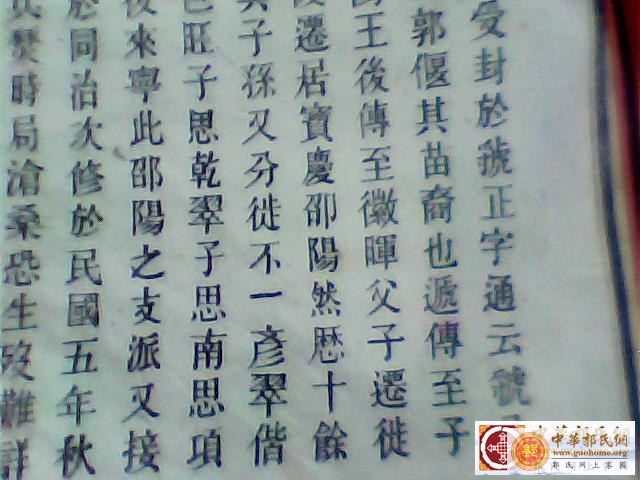 受封於虢正字通云虢
郭偃其苗裔也遞傳至子
王後傳至徽暉父子遷徙
遷居寶慶邵陽然歷十餘
子孫又分徙不一彥翠偕
旺子思乾翠子思南思項
後來寧此邵陽之支派又接
於同治次修於民國五年秋
焚時局滄桑恐生歧難詳
中華郭氏網
www.guohome.org
郭氏网上家园